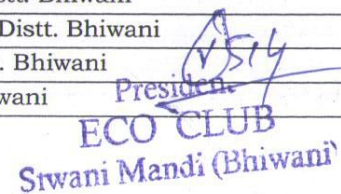 Distt. Bhiwani
. Bhiwani
wani
President
ECO CLUB
Siwani Mandi (Bhiwani)